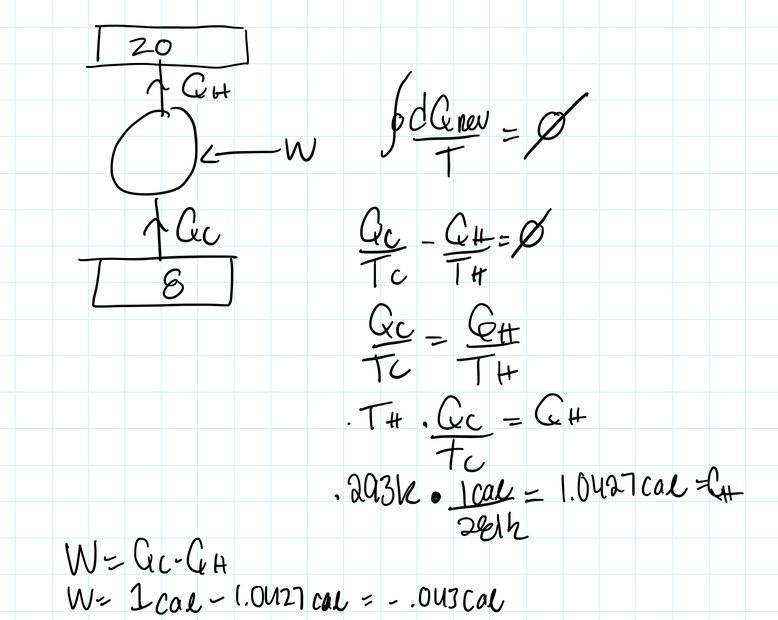 20
Q_H
W
Q_C
8
∮ dQ_rev / T = ∅
Q_C / T_C - Q_H / T_H = ∅
Q_C / T_C = Q_H / T_H
. T_H . Q_C / T_C = Q_H
. 293k • 1cal / 281k = 1.0427cal = Q_H
W = Q_C - Q_H
W = 1cal - 1.0427cal = -.043cal